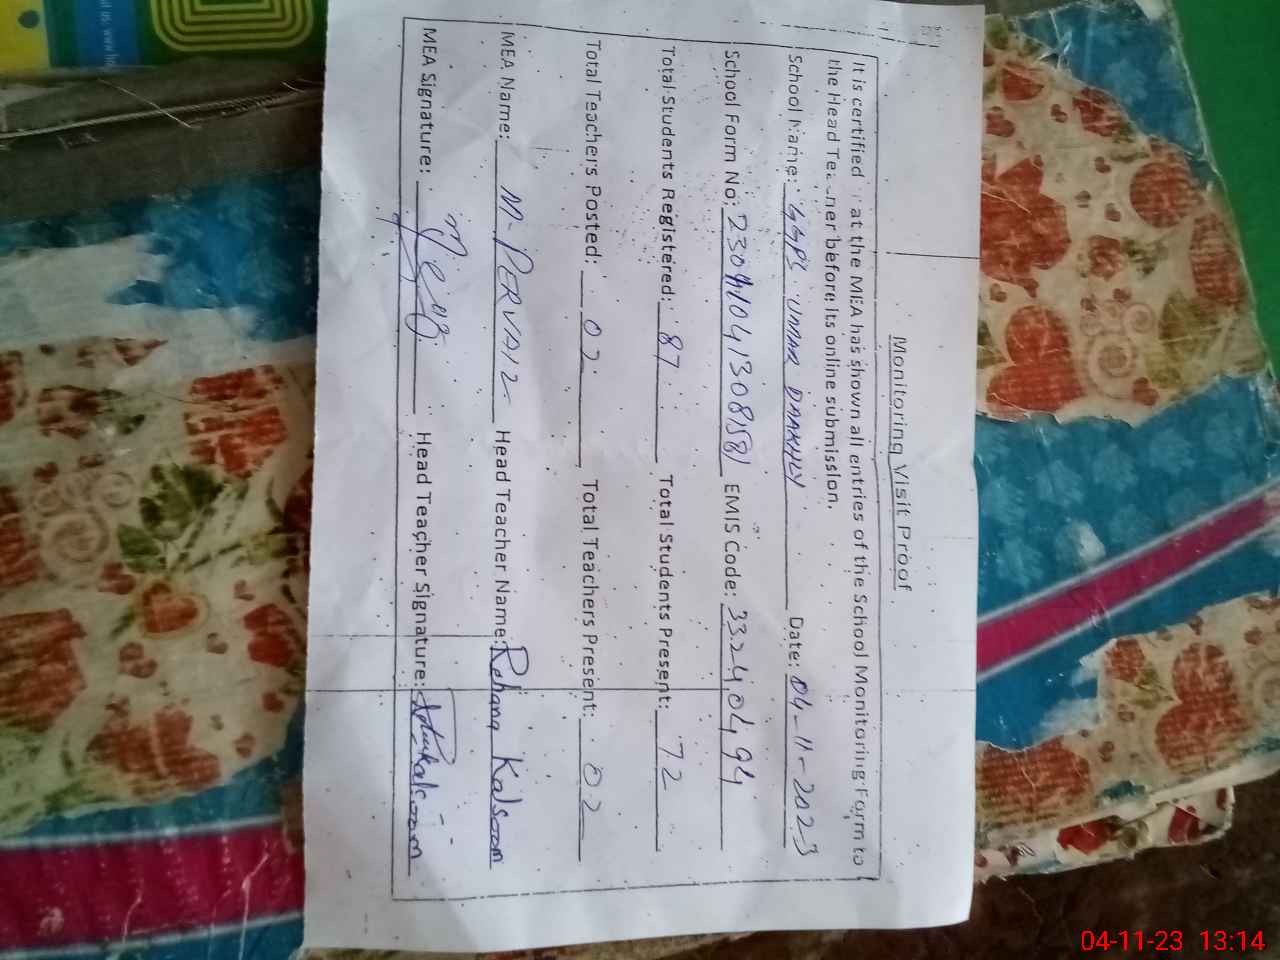 Monitoring Visit Proof
It is certified that the MEA has shown all entries of the School Monitoring Form to
the Head Teacher before its online submission.
School Name: GGPS UMAR DAAKHLY Date: 04-11-2023
School Form No: EMIS Code: 33240494
Total Students Registered: 87 Total Students Present: 72
Total Teachers Posted: 02 Total Teachers Present: 02
MEA Name: M. PERVAIZ Head Teacher Name: Rehana Kalsoom
MEA Signature: Head Teacher Signature:
04-11-23 13:14